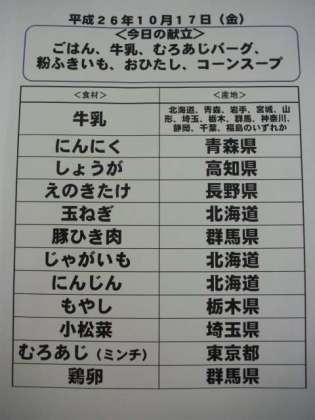 平成２６年１０月１７日（金）
＜今日の献立＞
ごはん、牛乳、むろあじバーグ、
粉ふきいも、おひたし、コーンスープ
＜食材＞ ＜産地＞
牛乳 北海道、青森、岩手、宮城、山
形、埼玉、栃木、群馬、神奈川、
静岡、千葉、福島のいずれか
にんにく 青森県
しょうが 高知県
えのきたけ 長野県
玉ねぎ 北海道
豚ひき肉 群馬県
じゃがいも 北海道
にんじん 北海道
もやし 栃木県
小松菜 埼玉県
むろあじ（ミンチ） 東京都
鶏卵 群馬県